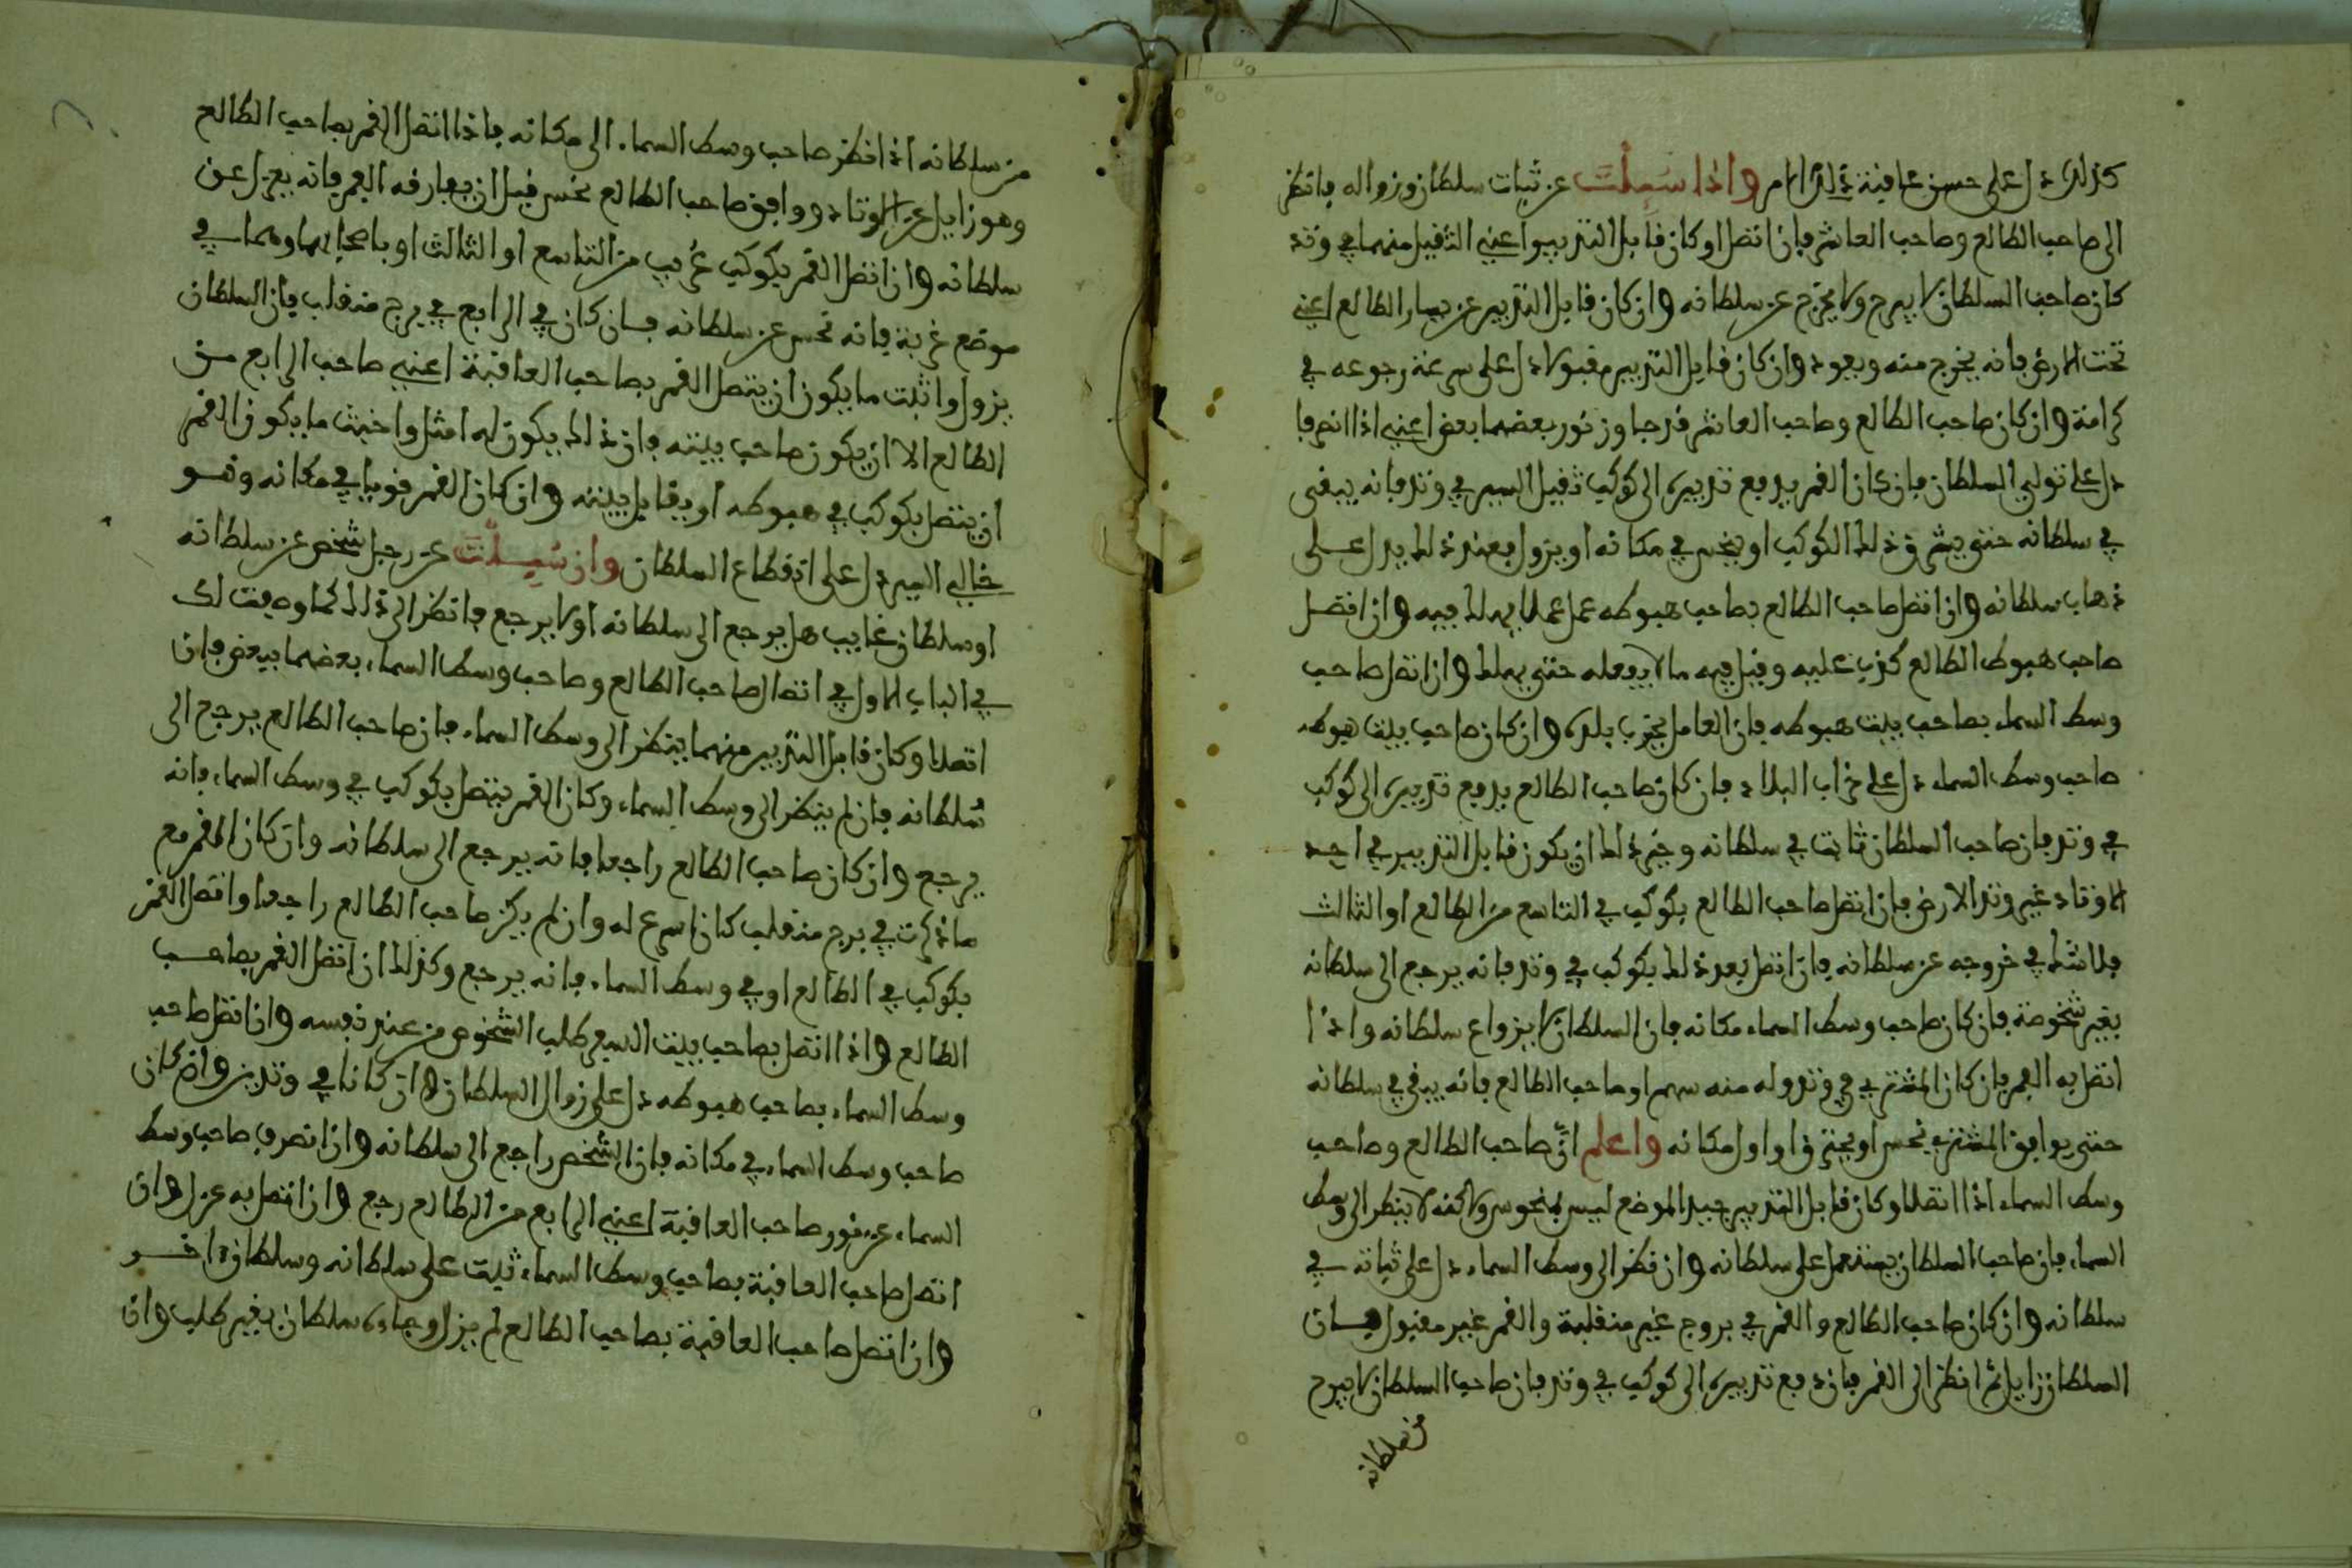 كذلك دل على حسن عاقبة ذلك الامر واذا سُيِلْتَ عن ثبات سلطان وزواله فانظر
الى صاحب الطالع وصاحب العاشر فان اتصلا وكان قابل التدبير اعني الثقيل منهما في وتد
كان صاحب السلطان لا يبرح ولا يخرج عن سلطانه وان كان قابل التدبير عن يسار الطالع اعني
تحت الارض فانه يخرج منه ويعود وان كان قابل التدبير مقبولا دل على سرعة رجوعه في
كرامة وان كان صاحب الطالع وصاحب العاشر قد جاوز نور بعضهما بعض اعني اذا انصرفا
دل على تولي السلطان فان كان القمر يدفع تدبيره الى كوكب ثقيل السير في وتد فانه يبقى
في سلطانه حتى يشرق ذلك الكوكب او ينحس في مكانه او يزول فعند ذلك يدل على
ذهاب سلطانه وان اتصل صاحب الطالع بصاحب هبوطه عمل عملا يهلك فيه وان اتصل
صاحب هبوط الطالع كذب عليه وقيل فيه ما لا يفعله حتى يهلك وان اتصل صاحب
وسط السماء بصاحب بيت هبوطه فان العامل يخرب بلده وان كان صاحب بيت هبوطه
صاحب وسط السماء دل على خراب البلاد فان كان صاحب الطالع يدفع تدبيره الى كوكب
في وتد فان صاحب السلطان ثابت في سلطانه وخير ذلك ان يكون قابل التدبير في احد
الاوتاد غير وتد الارض فان اتصل صاحب الطالع بكوكب في التاسع من الطالع او الثالث
فلا شك في خروجه عن سلطانه فان اتصل بعد ذلك بكوكب في وتد فانه يرجع الى سلطانه
بغير شخوصه فان كان صاحب وسط السماء مكانه فان السلطان لا يزواع سلطانه واذا
اتصل به القمر فان كان المشتري في وتد وله منه سهم او صاحب الطالع فانه يبقى في سلطانه
حتى يوافق المشتري نحس او يحترق او اول مكانه واعلم انّ صاحب الطالع وصاحب
وسط السماء اذا اتصلا وكان قابل التدبير جيد الموضع ليس بمنحوس ولكنه لا ينظر الى وسط
السماء فان صاحب السلطان يستعمل على سلطانه وان نظر الى وسط السماء دل على ثباته في
سلطانه وان كان صاحب الطالع والقمر في بروج غير منقلبة والقمر غير مقبول فان
السلطان زايل ثم انظر الى القمر فان دفع تدبيره الى كوكب في وتد فان صاحب السلطان لا يبرح
من سلطانه
من سلطانه اذا نظر صاحب وسط السماء الى مكانه فاذا اتصل القمر بصاحب الطالع
وهو زايل عن الوتاد ووافق صاحب الطالع نحس قبل ان يفارقه القمر فانه يعزل عن
سلطانه وان اتصل القمر بكوكب غريب من التاسع او الثالث او باصحابهما وهما في
موضع غربة فانه نحس عن سلطانه فان كان في الرابع في برج منقلب فان السلطان
يزول واثبت ما يكون ان يتصل القمر بصاحب العاقبة اعني صاحب الرابع من
الطالع الا ان يكون صاحب بيته فان ذلك يكون له امثل واخبث ما يكون القمر
ان يتصل بكوكب في هبوطه او يقابل بيته وان كان القمر قويا في مكانه وهو
خالي السير دل على انقطاع السلطان وان سُيِلْتَ عن رجل شخص عن سلطانه
او سلطان غايب هل يرجع الى سلطانه او لا يرجع فانظر الى ذلك كما وصفت لك
في الباب الاول في اتصال صاحب الطالع وصاحب وسط السماء بعضهما ببعض فان
اتصلا وكان قابل التدبير منهما ينظر الى وسط السماء فان صاحب الطالع يرجع الى
سُلطانه فان لم ينظر الى وسط السماء وكان القمر يتصل بكوكب في وسط السماء فانه
يرجع وان كان صاحب الطالع راجعا فانه يرجع الى سلطانه وان كان القمر مع
ما ذكرت في برج منقلب كان اسرع له وان لم يكن صاحب الطالع راجعا واتصل القمر
بكوكب في الطالع او في وسط السماء فانه يرجع وكذلك ان اتصل القمر بصاحب
الطالع واذا اتصل بصاحب بيت السعي طلب الشخوص من عند نفسه وان اتصل صاحب
وسط السماء بصاحب هبوطه دل على زوال السلطان وان كانا في وتدين وان كان
صاحب وسط السماء في مكانه فان الشخص راجع الى سلطانه وان انصرف صاحب وسط
السماء عن نور صاحب العاقبة اعني الرابع من الطالع رجع وان اتصل به عزل وان
اتصل صاحب العاقبة بصاحب وسط السماء ثبت على سلطانه وسلطان اخر
وان اتصل صاحب العاقبة بصاحب الطالع لم يزل وجاءه سلطان بغير طلب وان